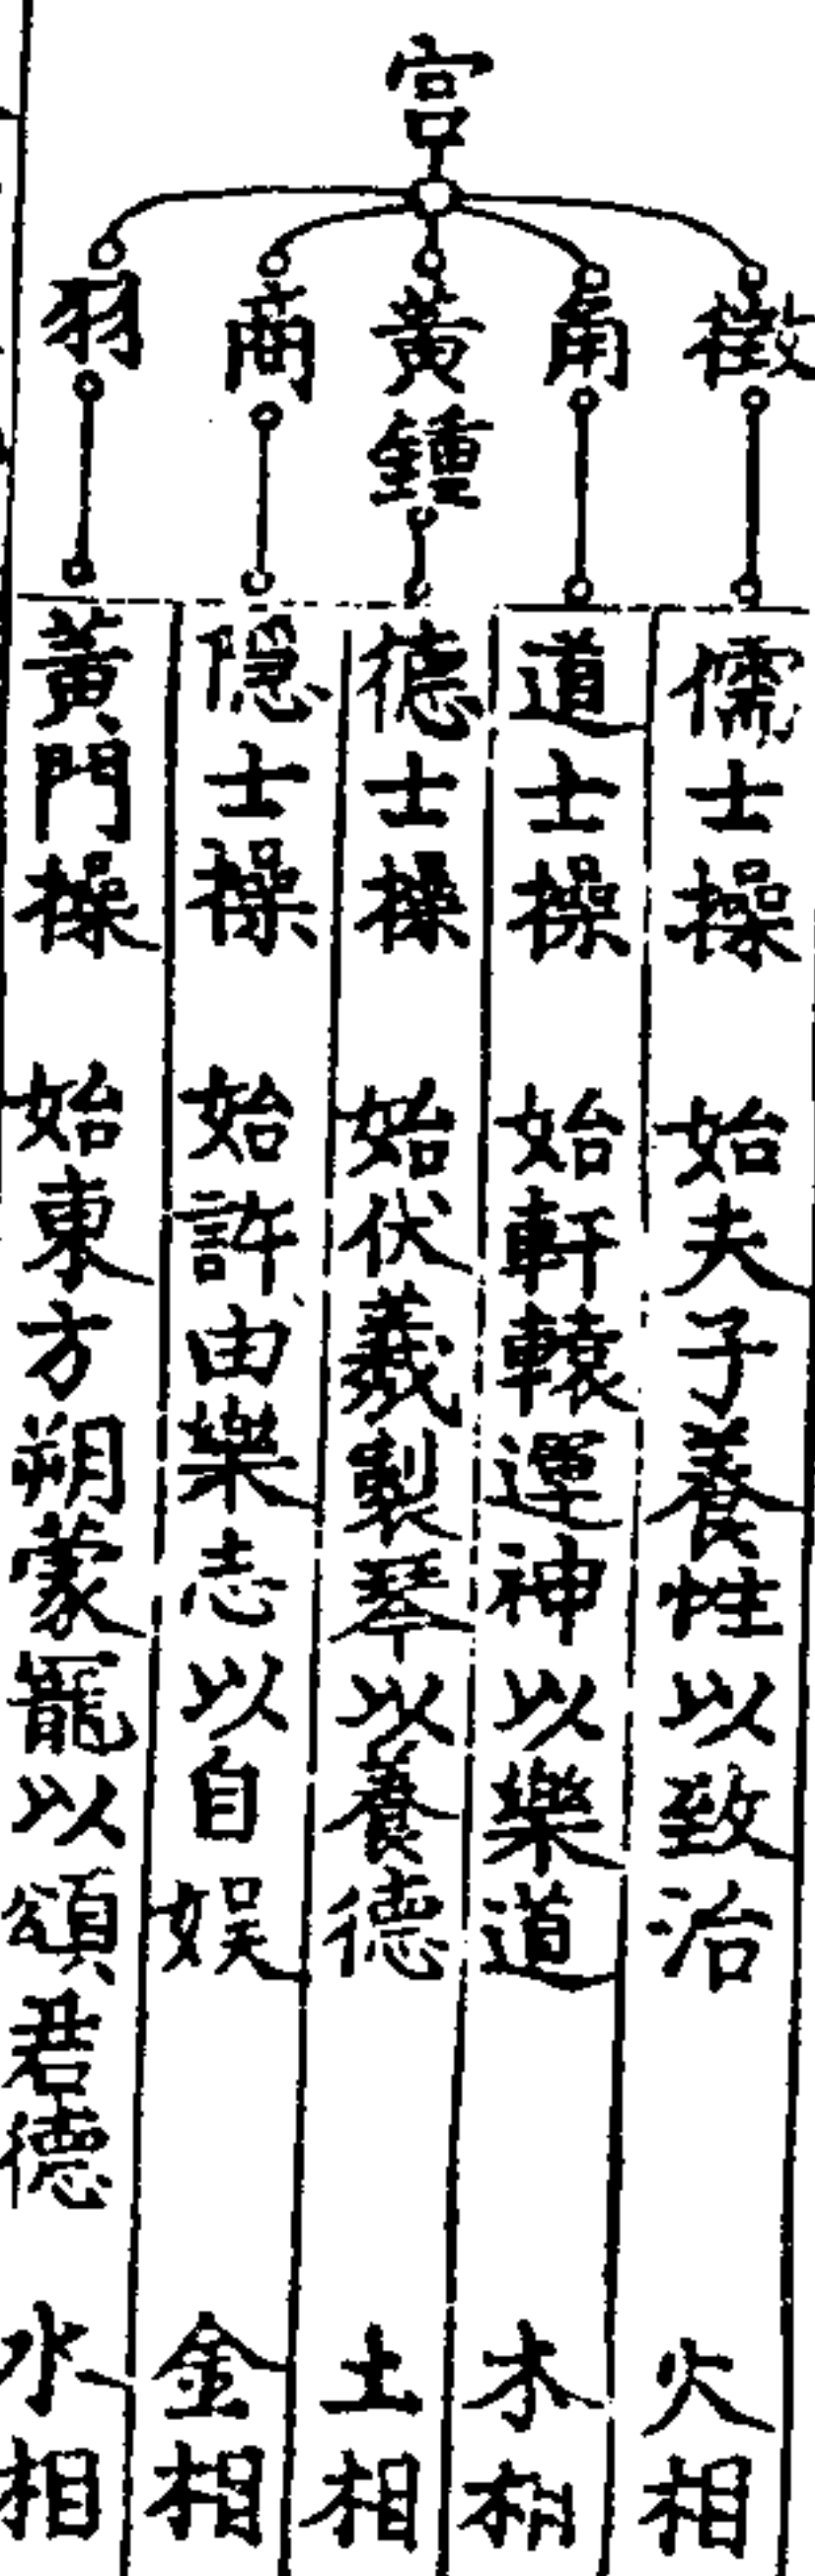 宮
徵
儒士操　始夫子養性以致治　火相
角
道士操　始軒轅運神以樂道　木相
黃鍾
德士操　始伏羲製琴以養德　土相
商
隱士操　始許由樂志以自娱　金相
羽
黃門操　始東方朔蒙寵以頌君德　水相